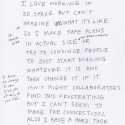 I LOVE WORKING IN
3D SPACE BUT CAN'T
IMAGINE WHAT IT'S LIKE.
SO I MAKE TAPE PLANS
IN ACTUAL SIZE OR
TRY TO CONVINCE PEOPLE
TO JUST START MAKING
WHATEVER IT IS AND
THEN CHANGE IT IF IT
ISN'T RIGHT. COLLABORATORS
FIND THIS FRUSTRATING
BUT I CAN'T SEEM TO
MAKE THE CONNECTION.
ALSO I HAVE A HARD TIME